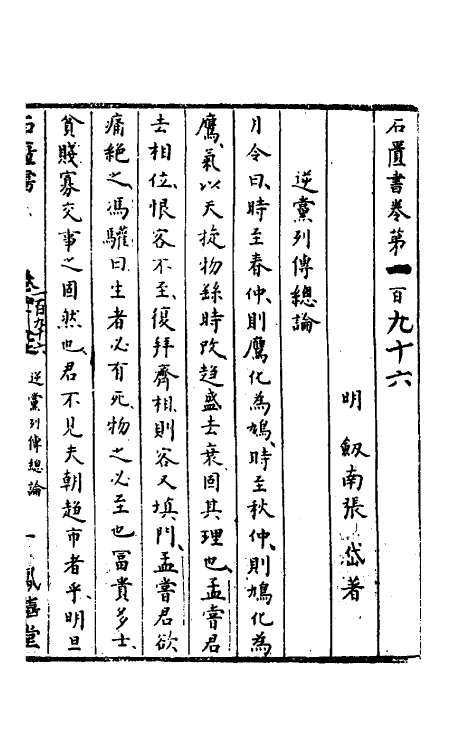 石匱書卷第一百九十六
明 劔南張岱著
逆黨列傳總論
月令曰、時至春仲、則鷹化為鳩、時至秋仲、則鳩化為
鷹、氣以天旋、物繇時改、趋盛去衰、固其理也、孟嘗君
去相位、恨客不至、復拜齊相、則客又填門、孟嘗君欲
痛絶之、馮驩曰、生者必有死、物之必至也、富貴多士、
貧賤寡交、事之固然也、君不見夫朝趋市者乎、明旦
石匱書
卷一百九十六
逆黨列傳總論
一
鳳嬉堂